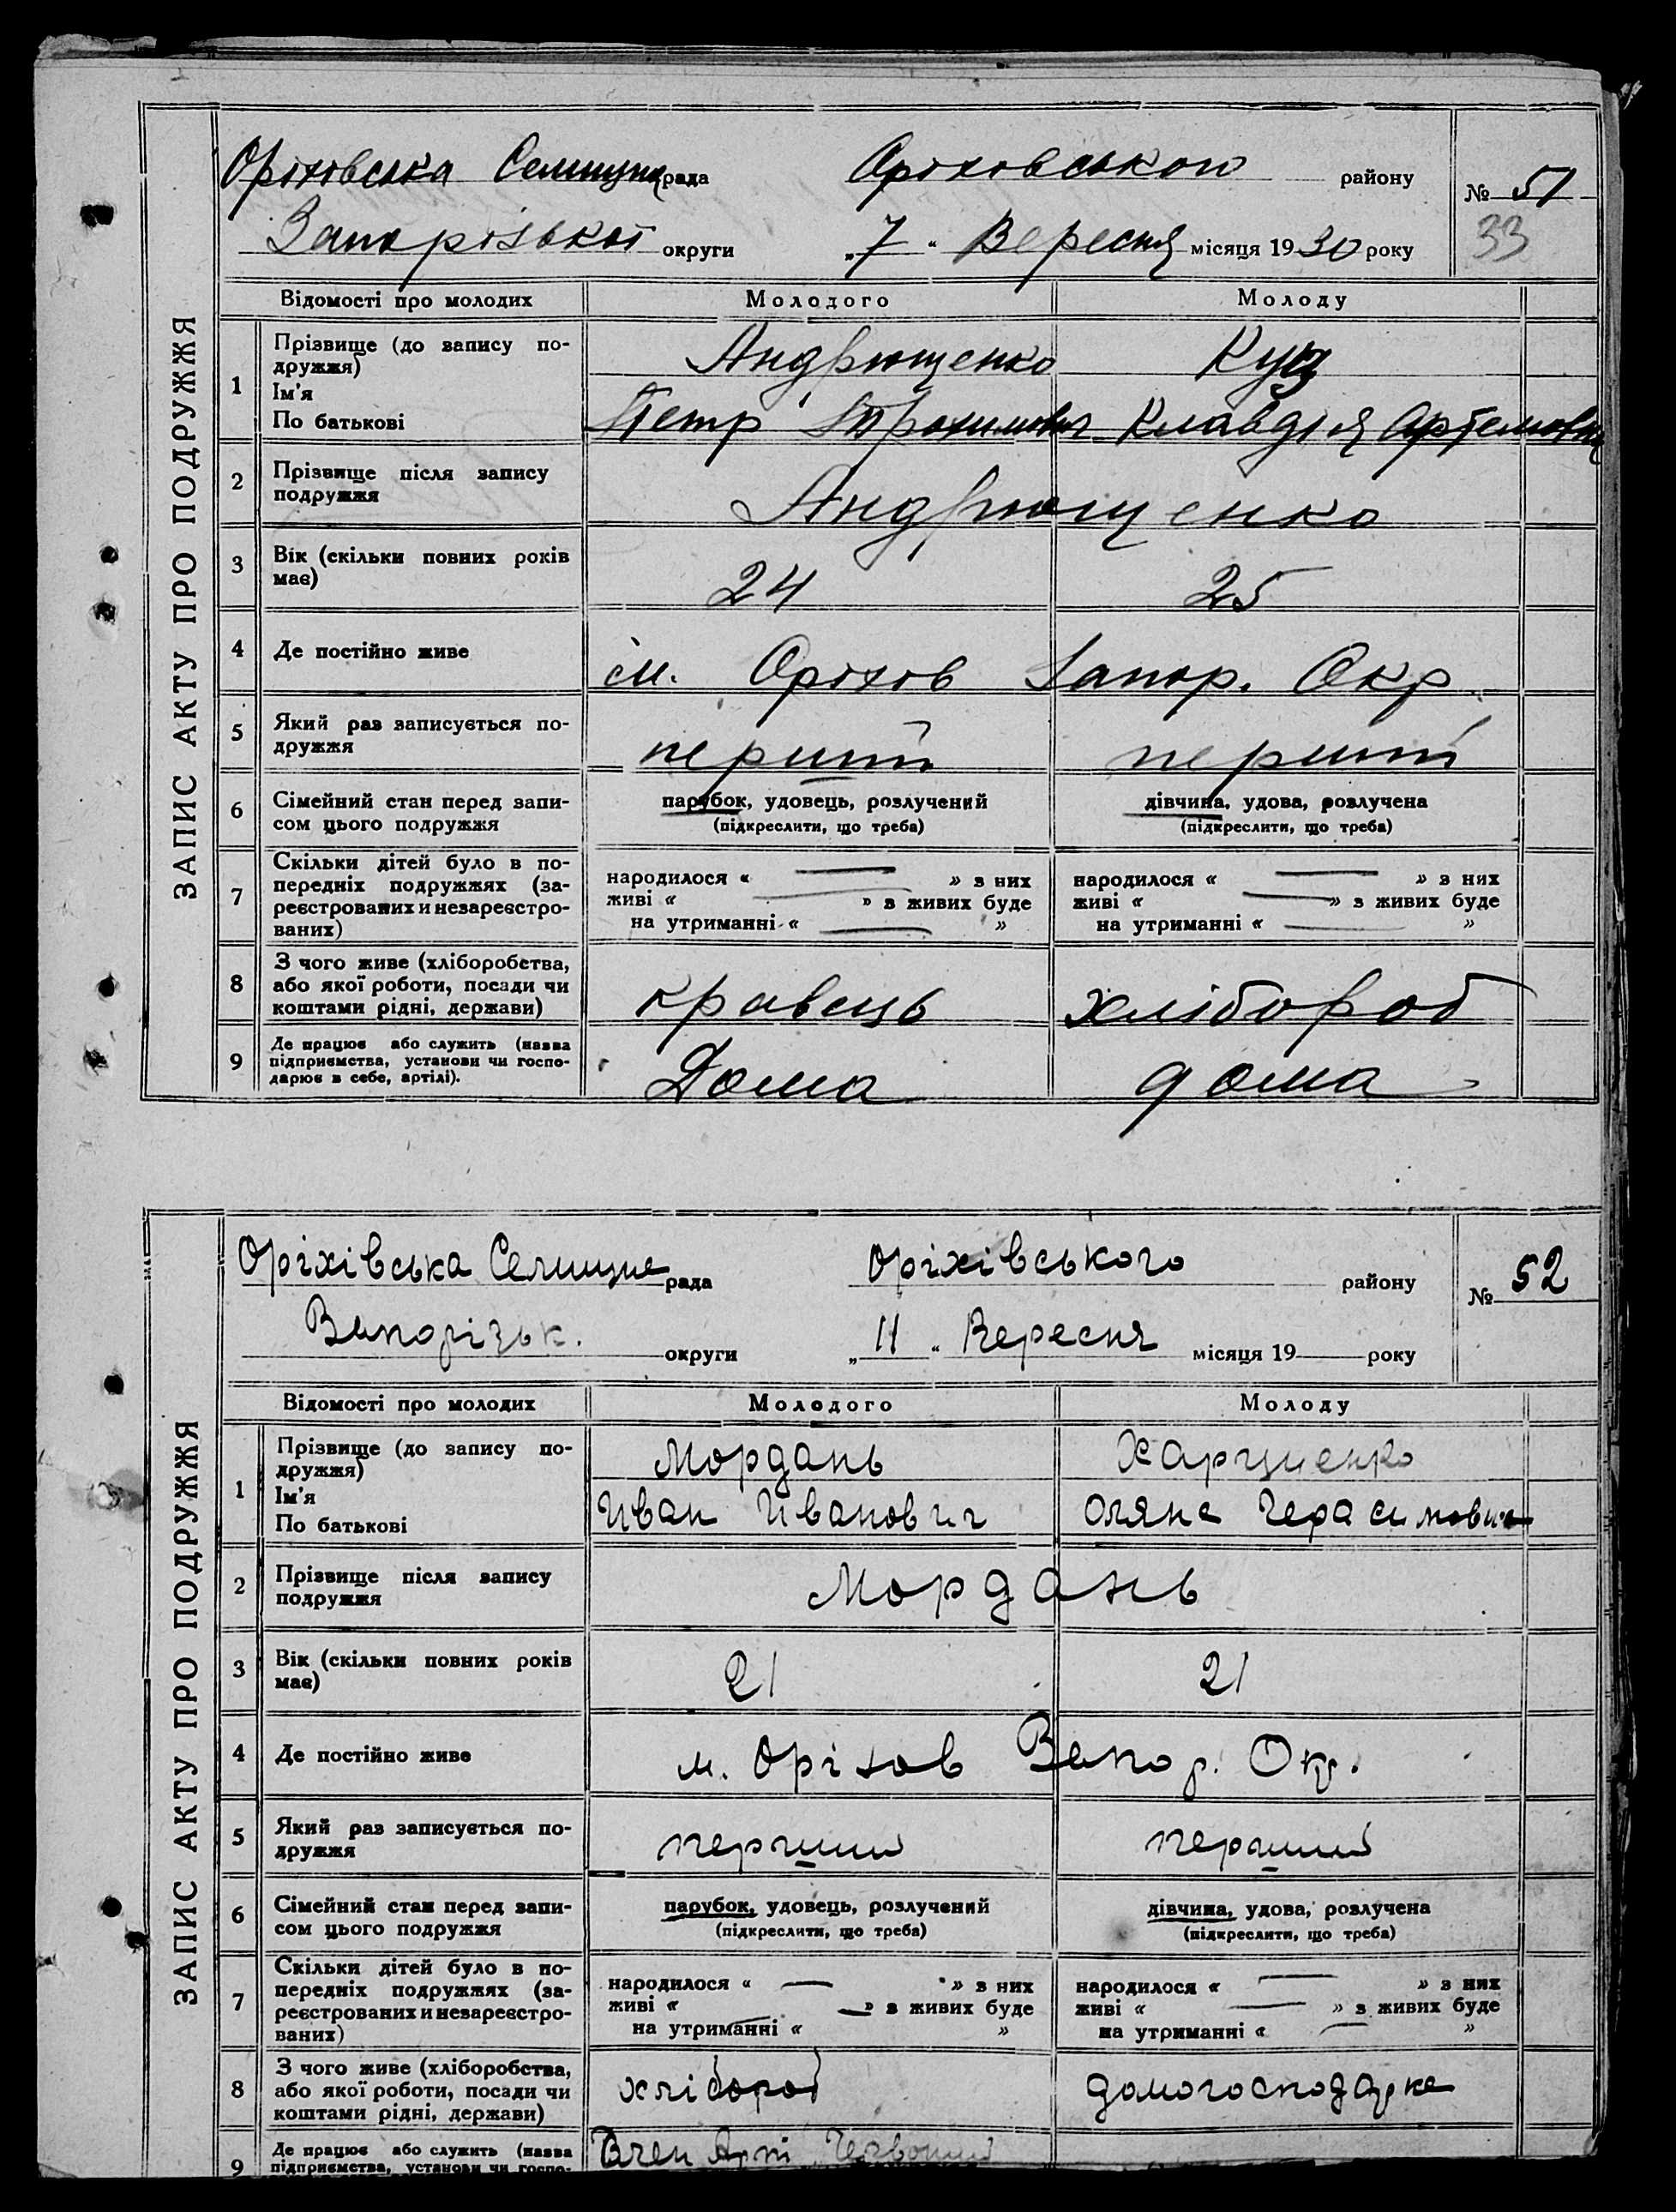 ЗАПИС АКТУ ПРО ПОДРУЖЖЯ
Оріховська Селищна рада Оріховського району № 51
Запорізької округи „7“ Вересня місяця 1930 року 33
Відомості про молодих Молодого Молоду
1 Прізвище (до запису по- Андрющенко Куц
дружжя)
Ім'я
По батькові Петр Трохимович Клавдія Артемовна
2 Прізвище після запису Андрющенко
подружжя
3 Вік (скільки повних років 24 25
має)
4 Де постійно живе м. Оріхов Запор. Окр.
5 Який раз записується по- перший перший
дружжя
6 Сімейний стан перед запи- парубок, удовець, розлучений дівчина, удова, розлучена
сом цього подружжя (підкреслити, що треба) (підкреслити, що треба)
7 Скільки дітей було в по- народилося « — » з них народилося « — » з них
передніх подружжях (за- живі « — » з живих буде живі « — » з живих буде
реєстрованих и незареєстро- на утриманні « — » на утриманні « — »
ваних)
8 З чого живе (хліборобства, кравець хлібороб
або якої роботи, посади чи
коштами рідні, держави)
9 Де працює або служить (назва Дома дома
підприємства, установи чи госпо-
дарює в себе, артілі).
ЗАПИС АКТУ ПРО ПОДРУЖЖЯ
Оріхівська Селищна рада Оріхівського району № 52
Запорізьк. округи „11“ Вересня місяця 19 року
Відомості про молодих Молодого Молоду
1 Прізвище (до запису по- Мордань Харченко
дружжя)
Ім'я
По батькові Иван Иванович Оляна Герасимовна
2 Прізвище після запису Мордань
подружжя
3 Вік (скільки повних років 21 21
має)
4 Де постійно живе м. Оріхов Запор. Окр.
5 Який раз записується по- перший перший
дружжя
6 Сімейний стан перед запи- парубок, удовець, розлучений дівчина, удова, розлучена
сом цього подружжя (підкреслити, що треба) (підкреслити, що треба)
7 Скільки дітей було в по- народилося « — » з них народилося « — » з них
передніх подружжях (за- живі « — » з живих буде живі « — » з живих буде
реєстрованих и незареєстро- на утриманні « » на утриманні « — »
ваних)
8 З чого живе (хліборобства, хлібороб домогосподарка
або якої роботи, посади чи
коштами рідні, держави)
9 Де працює або служить (назва Член Арті
підприємства, установи чи госпо-